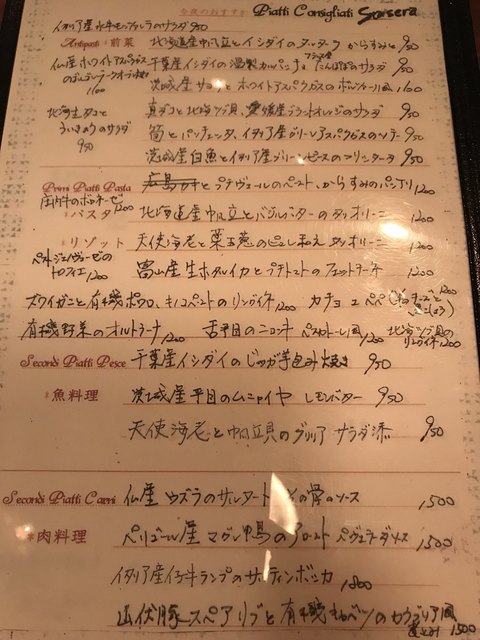 今夜のおすすめ Piatti Consigliati Stasera
イタリア産水牛モッツァレラのサラダ 950
Antipasti 前菜 北海道産帆立とイシダイのタルタル からすみと 950
仏産ホワイトアスパラガスの 1600
千葉産イシダイの燻製カルパッチョ たんぽぽのサラダ 950
茨城産サヨリとホワイトアスパラガスの 1100
北海生タコと
ういきょうのサラダ
950
真ダコと北海ツブ貝、愛媛産ブラッドオレンジのサラダ 950
筍とパンチェッタ、イタリア産グリーンアスパラガスのソテー 950
茨城産白魚とイタリア産グリーンピースのフリッタータ 950
Primi Piatti Pasta
カキとプチヴェールのペースト、からすみのパッケリ 1200
庄内牛のボロネーゼ 1200
パスタ 北海道産帆立とバジルバターのタリオリーニ 1200
リゾット 天使海老と菜の花のピュレ和え タリオリーニ 1200
ペストジェノヴェーゼの
トロフィエ 1200
富山産生ホタルイカとプチトマトのフェットチーネ 1200
ズワイガニと有機ポワロ、キノコペーストのリングイネ 1200 カチョ エ ペペ 1200
有機野菜のオルトラーナ 1200 舌平目のニョッキ ペスカトーレ風 1200 北海ツブ貝の
リングイネ 1200
Secondi Piatti Pesce 千葉産イシダイのじゃが芋包み焼き 950
魚料理 茨城産平目のムニャイヤ レモンバター 950
天使海老と帆立貝のグリリア サラダ添 950
Secondi Piatti Carni 仏産 ウズラのサルタート その骨のソース 1500
肉料理 ペリゴール産マグレ鴨のアロースト ペヴェラーダソース 1500
イタリア産仔牛ランプのサルティンボッカ 1800
山伏豚スペアリブと有機キャベツのカツレツ風 1500